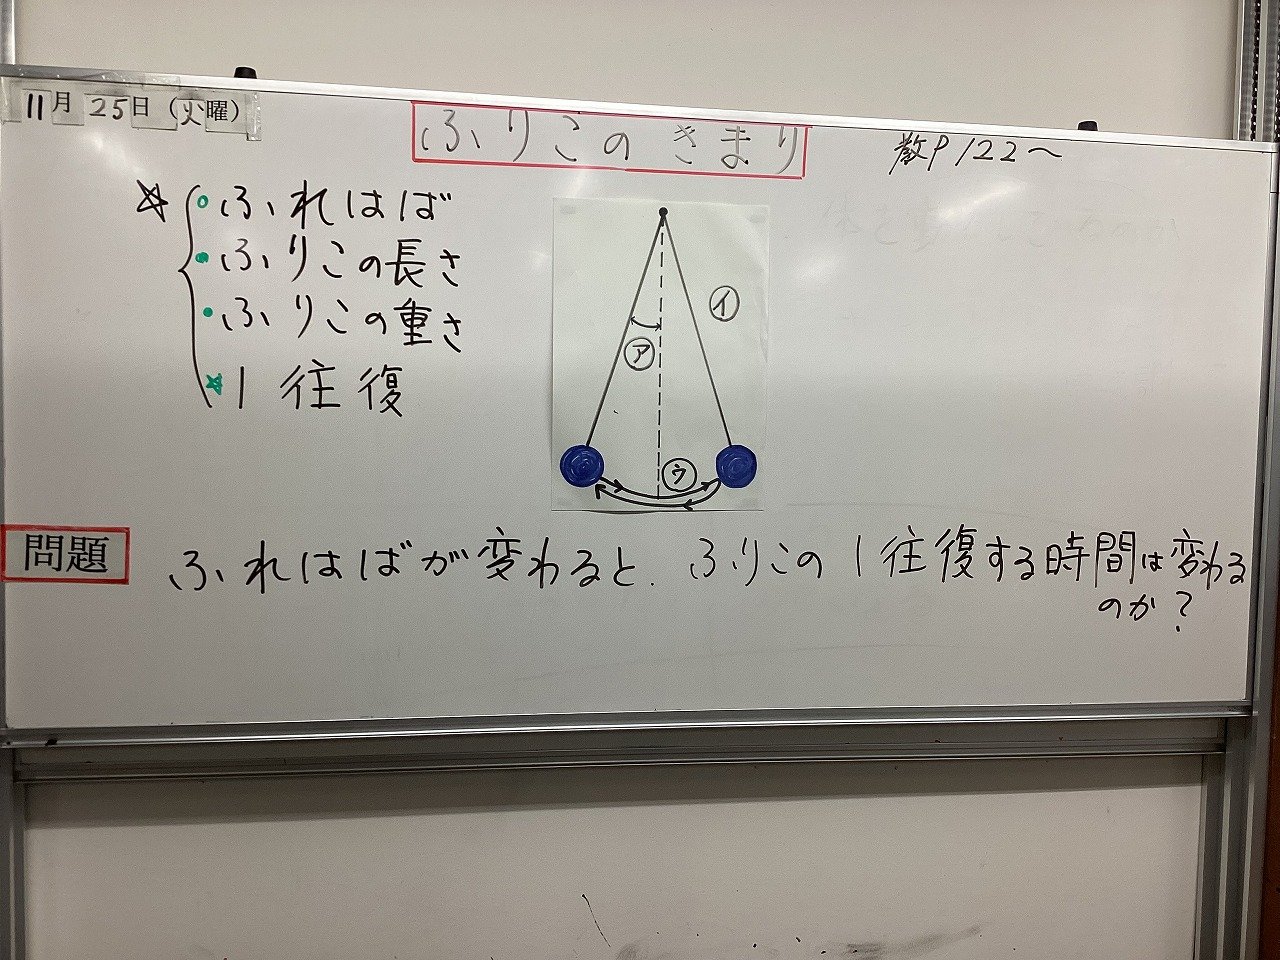 11月25日(火曜)
ふりこのきまり
教P122〜
☆・ふれはば
・ふりこの長さ
・ふりこの重さ
☆1往復
㋐
㋑
㋒
問題
ふれはばが変わると、ふりこの1往復する時間は変わる
のか?